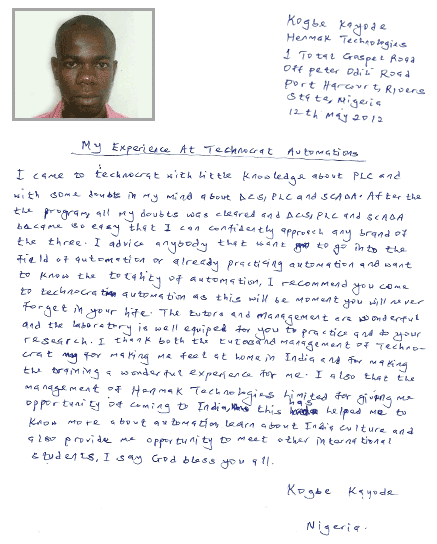 Kogbe Kayode
Hermak Technologies
1 Total Gospel Road
Off peter Odili Road
Port Harcourt, Rivers
State, Nigeria
12th May 2012
My Experience At Technocrat Automations
I came to technocrat with little knowledge about PLC and
with some doubts in my mind about DCS, PLC and SCADA. After the
the program, all my doubts was cleared and DCS, PLC and SCADA
became so easy that I can confidently approach any brand of
the three. I advice anybody that want to go into the
field of automation or already practicing automation and want
to know the totality of automation, I recommend you come
to technocrat automation as this will be moment you will never
forget in your life. The tutors and management are wonderful
and the laboratory is well equiped for you to practice and do your
research. I thank both the tutor and management of Techno-
crat for making me feel at home in India and for making
the training a wonderful experience for me. I also that the
management of Hermak Technologies Limited for giving me
opportunity of coming to India, this has helped me to
know more about automation, learn about India culture and
also provide me opportunity to meet other international
students, I say God bless you all.
Kogbe Kayode
Nigeria.